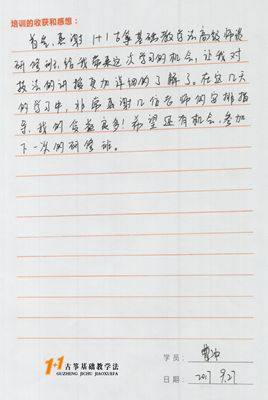 培训的收获和感想：
首先，感谢 1+1古筝基础教学法高级师资
研修班，给我带来这次学习的机会，让我对
技法的训练更加详细的了解了。在这几天
的学习中，非常感谢几位老师的安排指
导，我的受益良多！希望还有机会，参加
下一次的研修班。
学员：
1+1 古筝基础教学法
GUZHENG JICHU JIAOXUEFA
日期：2017 9.27